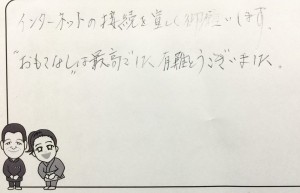 インターネットの接続を宜しくお願いします.
"おもてなし"は最高でした 有難とうございました。